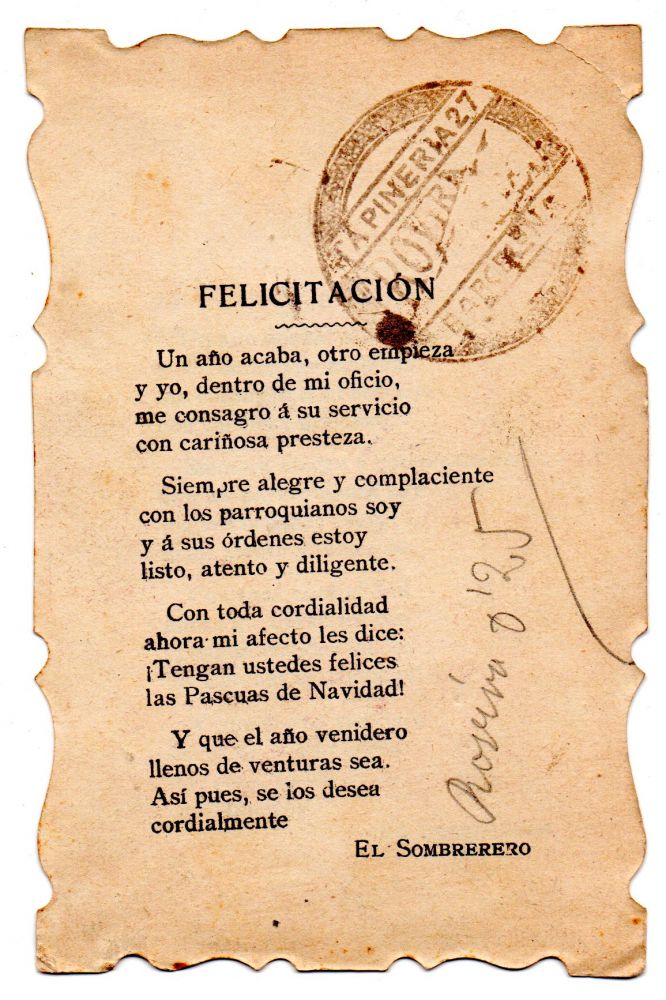 TAPINERIA 27
ROVIRA
BARCELONA
FELICITACIÓN
Un año acaba, otro empieza
y yo, dentro de mi oficio,
me consagro á su servicio
con cariñosa presteza.
Siempre alegre y complaciente
con los parroquianos soy
y á sus órdenes estoy
listo, atento y diligente.
Con toda cordialidad
ahora mi afecto les dice:
¡Tengan ustedes felices
las Pascuas de Navidad!
Y que el año venidero
llenos de venturas sea.
Así pues, se los desea
cordialmente
EL SOMBRERERO
0'25